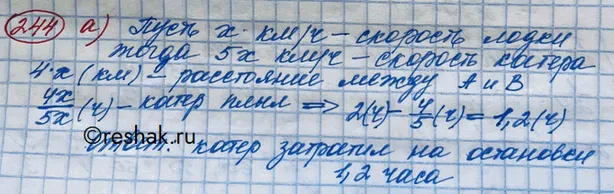 244 а) Пусть x км/ч – скорость лодки
тогда 5x км/ч – скорость катера
4·x (км) – расстояние между А и В
4x/5x (ч) – катер плыл ⇒ 2(ч) – 4/5 (ч) = 1,2(ч)
©reshak.ru
Ответ: катер затратил на остановки
1,2 часа